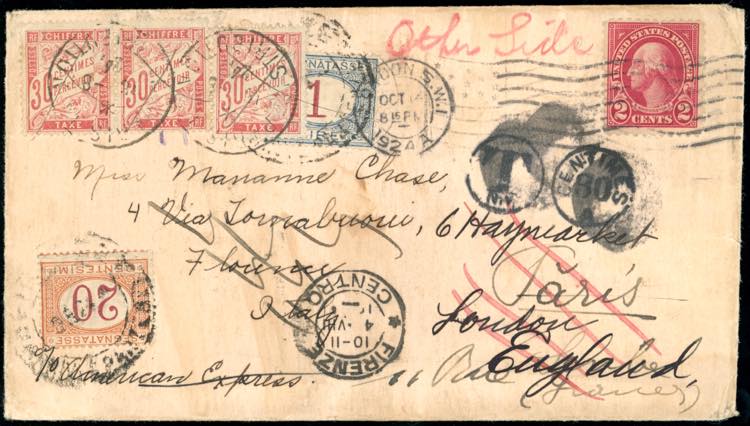 Other Side
RF CHIFFRE RF
30 CENTIMES 30
A PERCEVOIR
TAXE
RF CHIFFRE RF
30 CENTIMES 30
A PERCEVOIR
TAXE
RF CHIFFRE RF
30 CENTIMES 30
A PERCEVOIR
TAXE
SEGNATASSE
1
LONDON S.W.1
OCT
8 15 PM
1924
UNITED STATES POSTAGE
2 CENTS 2
T
CENTIMES
Miss Marianne Chase,
4 Via Tornabuoni,
6 Haymarket
Florence
Italy
Paris
London
England,
c/o American Express.
11 Rue
(France)
20
CENTESIMI
SEGNATASSE
FIRENZE
CENTRO
10-11